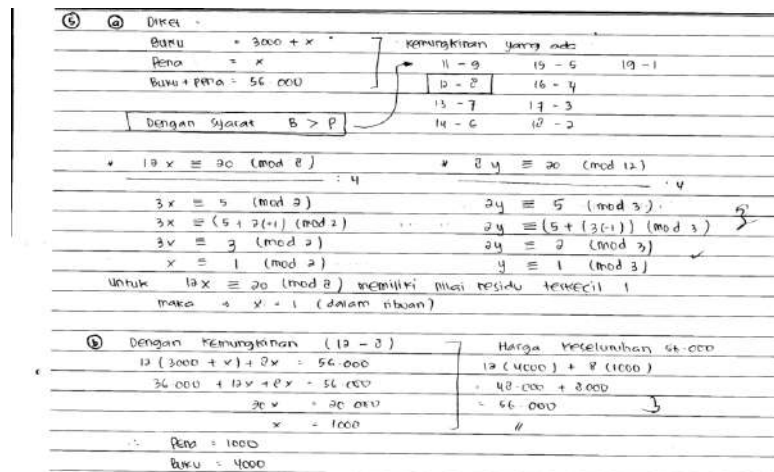 ⑤ ⓐ Diket :
Buku = 3000 + x
Pena = x
Buku + pena = 56.000
Dengan syarat B > P
Kemungkinan yang ada
11 - 9 15 - 5 19 - 1
12 - 8 16 - 4
13 - 7 17 - 3
14 - 6 18 - 2
* 12x ≡ 20 (mod 8)
: 4
3x ≡ 5 (mod 2)
3x ≡ (5 + 2(-1) (mod 2)
3x ≡ 3 (mod 2)
x ≡ 1 (mod 2)
* 8y ≡ 20 (mod 12)
: 4
2y ≡ 5 (mod 3)
2y ≡ (5 + (3(-1)) (mod 3)
2y ≡ 2 (mod 3)
y ≡ 1 (mod 3)
5
untuk 12x ≡ 20 (mod 8) memiliki nilai residu terkecil 1
maka → x = 1 (dalam ribuan)
ⓑ Dengan kemungkinan (12 - 8)
12 (3000 + x) + 8x = 56.000
36.000 + 12x + 8x = 56.000
20x = 20.000
x = 1000
Harga keseluruhan 56.000
12 (4000) + 8 (1000)
= 48.000 + 8000
= 56.000
∴ Pena = 1000
Buku = 4000